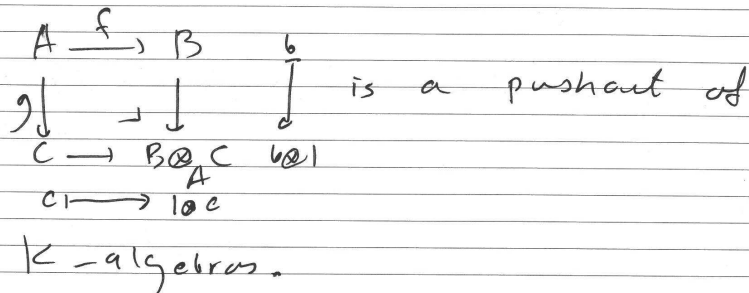 A —f→ B b
g ↓ ⌟ ↓ ↓ is a pushout of
C → B⊗C b⊗1
A
c ↦ 1⊗c
K-algebras.